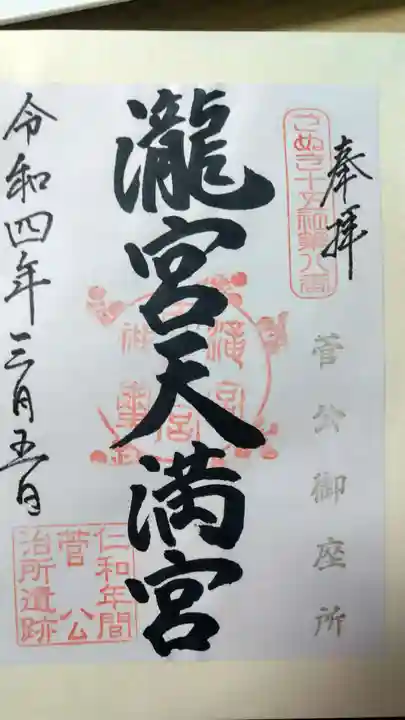 奉拝
さぬき十五社第八番
菅公御座所
瀧宮天満宮
仁和年間
菅公
治所遺跡
令和四年三月五日